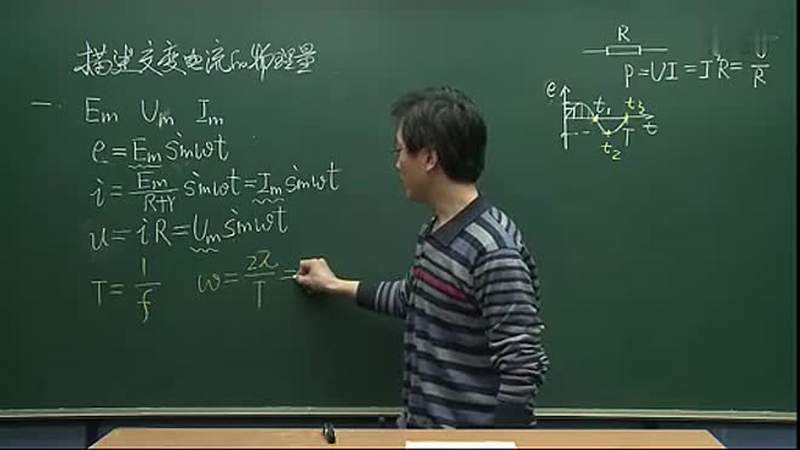 描述交变电流的物理量
一 Em Um Im
e=Em sinωt
i=Em/(R+r) sinωt=Im sinωt
u=iR=Um sinωt
T=1/f ω=2π/T=
R
P=UI=I²R=U²/R
e t₁ t₃
t₂ T t